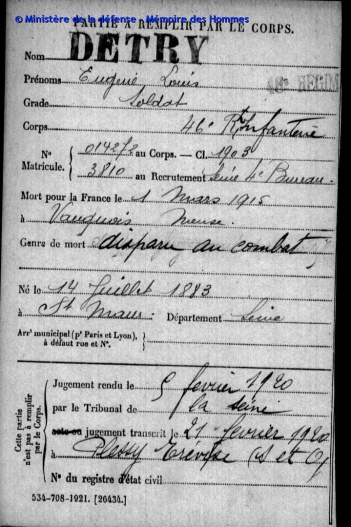 © Ministère de la défense - Mémoire des Hommes
PARTIE À REMPLIR PAR LE CORPS.
Nom DETRY
Prénoms Eugène Louis
Grade Soldat
46e RÉGIM
Corps 46e R. Infanterie
N° 014272 au Corps. — Cl. 1903
Matricule. 3810 au Recrutement Seine 4e Bureau
Mort pour la France le 1 Mars 1915
à Vauquois Meuse
Genre de mort disparu au combat
Né le 14 Juillet 1883
à St Maur Département Seine
Arrt municipal (pr Paris et Lyon),
à défaut rue et N°.
Cette partie
n'est pas à remplir
par le Corps.
Jugement rendu le 5 février 1920
par le Tribunal de la Seine
acte ou jugement transcrit le 21 février 1920
à Plessy Trévise (S et O)
N° du registre d'état civil
534-708-1921. [26434.]